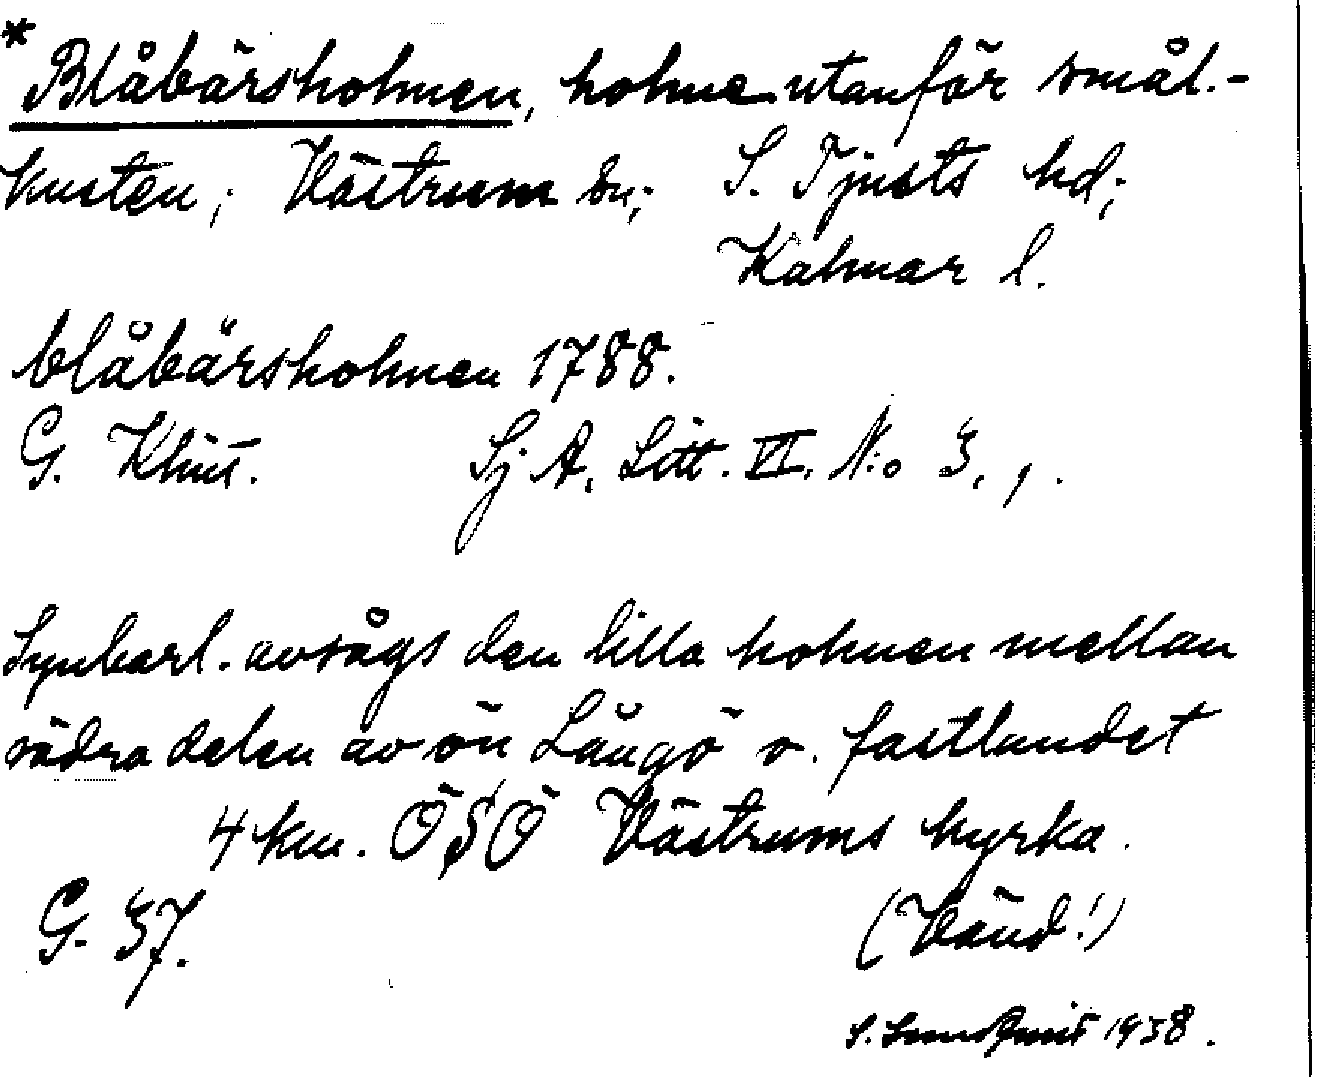 * Blåbärsholmen, holme utanför smål.-
kusten; Västrum sn; S. Tjusts hd;
Kalmar l.
blåbärsholmen 1788.
G. Klint. Sj A. Litt. VI. N:o 3, 1.
Synbarl. avsågs den lilla holmen mellan
södra delen av ön Långö o. fastlandet
4 km. ÖSÖ Västrums kyrka.
G. 37. (Vänd!)
S. Sundqvist 1938.